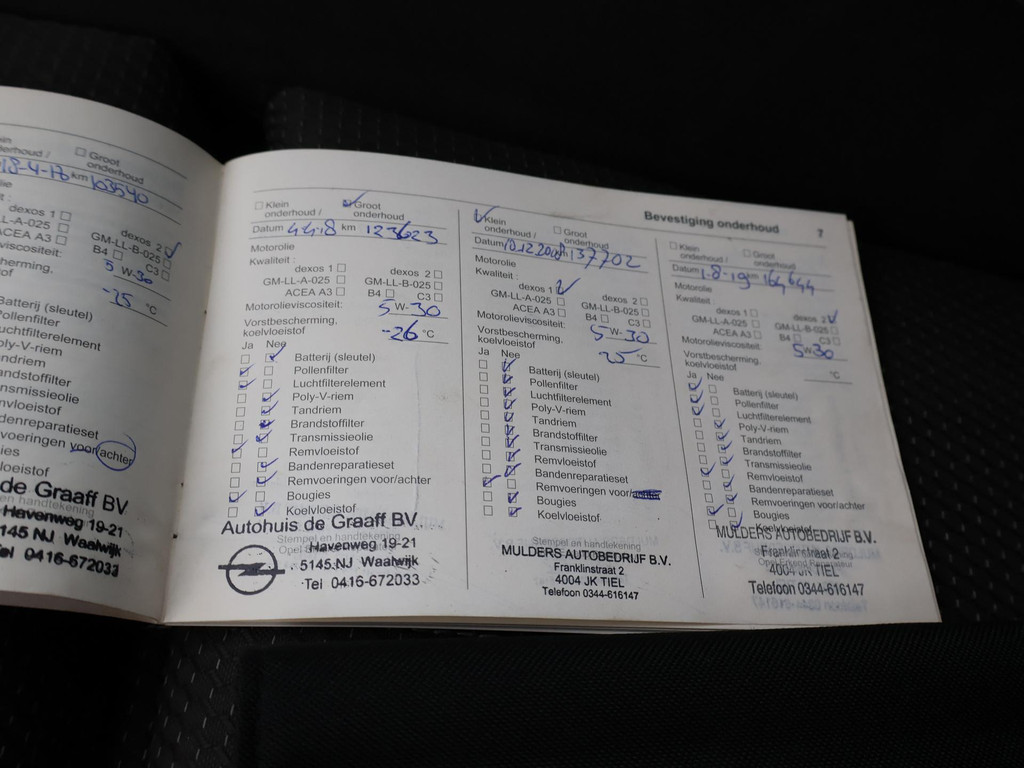 ein
derhoud /
☐ Groot
onderhoud
18-4-17 km 103540
dexos 1 ☐
dexos 2 ☑
LL-A-025 ☐
GM-LL-B-025 ☐
ACEA A3 ☐
B4 ☐
C3 ☐
lieviscositeit:
5 W-30
herming,
-25 °C
Batterij (sleutel)
Pollenfilter
Luchtfilterelement
Poly-V-riem
Tandriem
andstoffilter
nsmissieolie
mvloeistof
ndenreparatieset
mvoeringen voor/achter
gies
loeistof
de Graaff BV.
Havenweg 19-21
5145 NJ Waalwijk
Tel 0416-672033
☐ Klein
onderhoud /
☑ Groot
onderhoud
Datum 4-4-18 km 123623
Motorolie
Kwaliteit :
dexos 1 ☐
dexos 2 ☐
GM-LL-A-025 ☐
GM-LL-B-025 ☐
ACEA A3 ☐
B4 ☐
C3 ☐
Motorolieviscositeit:
5 W-30
Vorstbescherming,
koelvloeistof
-26 °C
Ja Nee
Batterij (sleutel)
Pollenfilter
Luchtfilterelement
Poly-V-riem
Tandriem
Brandstoffilter
Transmissieolie
Remvloeistof
Bandenreparatieset
Remvoeringen voor/achter
Bougies
Koelvloeistof
Stempel en handtekening
Autohuis de Graaff BV.
Havenweg 19-21
5145 NJ Waalwijk
Tel 0416-672033
Bevestiging onderhoud 7
☑ Klein
onderhoud /
☐ Groot
onderhoud
Datum 10.12.20 km 137702
Motorolie
Kwaliteit :
dexos 1 ☑
dexos 2 ☐
GM-LL-A-025 ☐
GM-LL-B-025 ☐
ACEA A3 ☐
B4 ☐
C3 ☐
Motorolieviscositeit:
5 W-30
Vorstbescherming,
koelvloeistof
25 °C
Ja Nee
Batterij (sleutel)
Pollenfilter
Luchtfilterelement
Poly-V-riem
Tandriem
Brandstoffilter
Transmissieolie
Remvloeistof
Bandenreparatieset
Remvoeringen voor/
Bougies
Koelvloeistof
Stempel en handtekening
MULDERS AUTOBEDRIJF B.V.
Franklinstraat 2
4004 JK TIEL
Telefoon 0344-616147
☐ Klein
onderhoud /
☐ Groot
onderhoud
Datum 1-8-19 km 164644
Motorolie
Kwaliteit
dexos 1 ☐
dexos 2 ☑
GM-LL-A-025 ☐
GM-LL-B-025 ☐
ACEA A3 ☐
B4 ☐
C3 ☐
Motorolieviscositeit:
5 W-30
Vorstbescherming,
koelvloeistof
°C
Ja Nee
Batterij (sleutel)
Pollenfilter
Luchtfilterelement
Poly-V-riem
Tandriem
Brandstoffilter
Transmissieolie
Remvloeistof
Bandenreparatieset
Remvoeringen voor/achter
Bougies
Koelvloeistof
MULDERS AUTOBEDRIJF B.V.
Franklinstraat 2
4004 JK TIEL
Telefoon 0344-616147